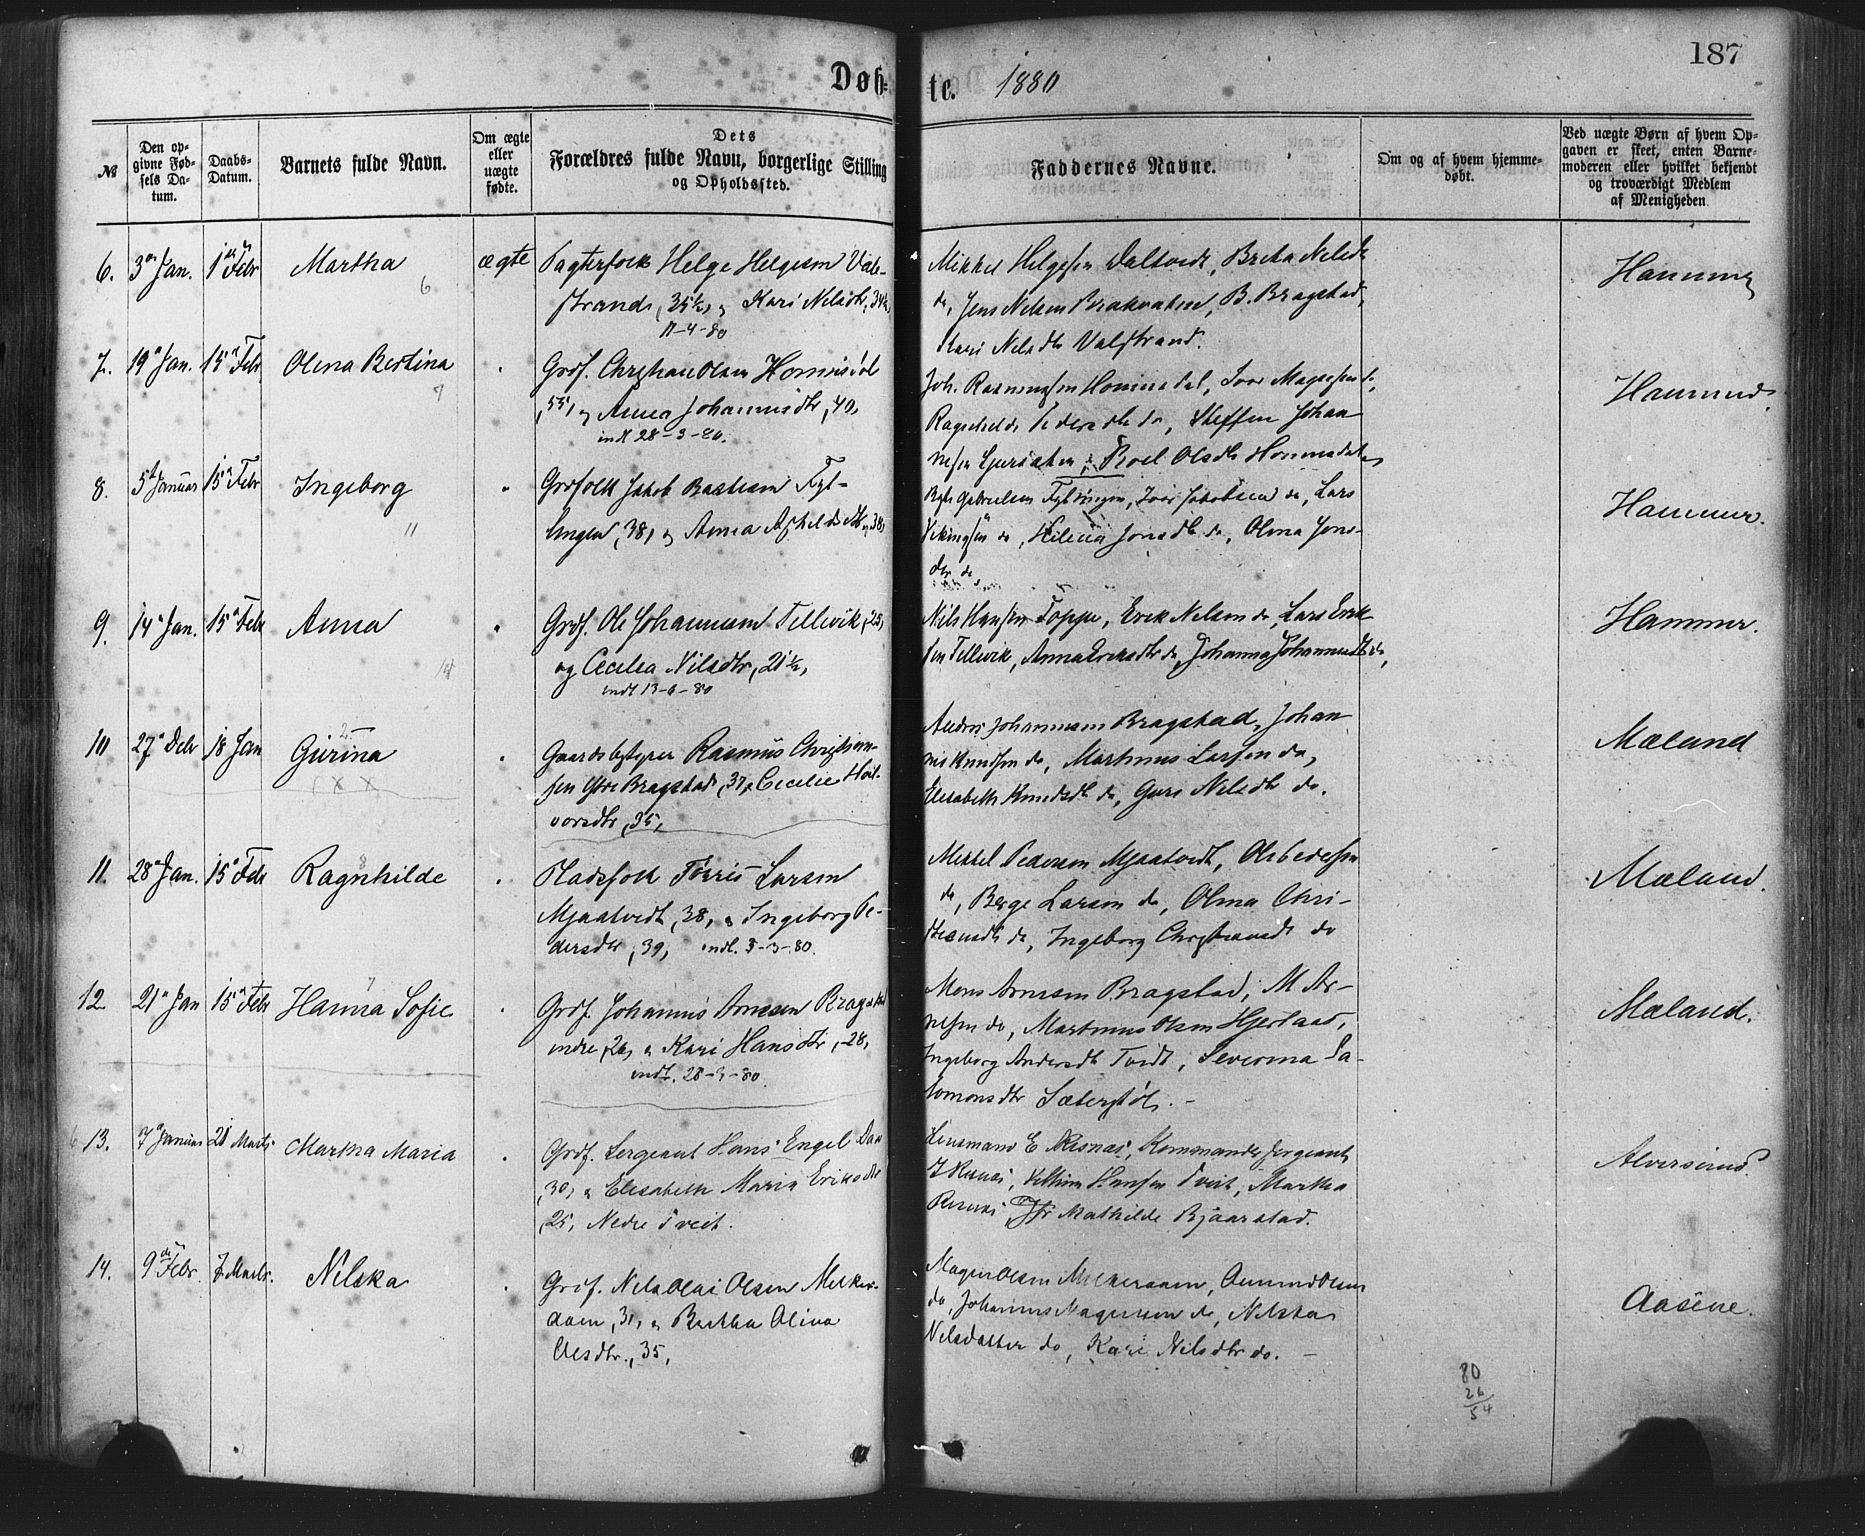 187
Døb-
te. 1880
№
Den op-
givne Fød-
sels Da-
tum.
Daabs-
Datum.
Barnets fulde Navn.
Om ægte
eller
uægte
fødte.
Dets
Forældres fulde Navn, borgerlige Stilling
og Opholdssted.
Faddernes Navne.
Om og af hvem hjemme-
døbt.
Ved uægte Børn af hvem Op-
gaven er skeet, enten Barne-
moderen eller hvilket bekjendt
og troværdigt Medlem
af Menigheden
6. 3 Jan. 1 Febr Martha ægte
6
Helge Helgesen Vale-
strand, 35½, og Kari Nelsdtr, 34½
11-4-80
Mikkel Helgesen
do, Jens Nelsen B. Bragstad,
Kari Nelsdtr Valestrand.
Hammer
7. 19 Jan. 15 Febr Olena Bertina
Grdf. Olsen
, 55, og Anna Johannisdtr, 40,
indt 28-3-80.
Joh. Rasmussen
do, Steffen Johan
Olsdtr
Hammer
8. 5 Januar 15 Febr Ingeborg
11
Grdfolk Jakob Fyl-
lingen, 38, og Anna
Gabrielsen Fyllingen, Iver Jakobsen do, Lars
do, Helena Jonsdtr do, Olina Jons-
dtr do,
Hammer.
9. 14 Jan. 15 Febr Anna
Grdf. Ole Johannesen Tellevik, 25,
og Cecilia Nilsdtr, 21½,
indt 13-6-80
Nils Hansen Toppe, Erik Nelsen do, Lars Erik
sen Tellevik, Anna Eriksdtr do, Johanna Johannesdtr do,
Hammer.
10 27 Debr 18 Jan Gurina
Gaardsbestyrer Rasmus Christian-
sen Ytre Bragstad, 37, Cecilie Hal-
vorsdtr, 35,
Andreas Johannesen Bragstad, Johan
nes Knudsen do, Martinus Larsen do,
Elisabeth Knudsdtr do, Guri Nilsdtr do.
Mæland
11. 28 Jan. 15 Febr Ragnhilde
Pladsfolk Larsen
Mjaatvedt, 38, og Ingeborg Pe-
dersdtr, 39, indt. 3-3-80.
Mikkel Pedersen Mjaatvedt, Ole Pedersen
do, Børge Larsen do, Olina Chri-
stiansdtr do, Ingeborg Christiansdtr do
Mæland.
12 21 Jan 15 Febr Hanna Sofie
7
Grdf. Johannes Arnesen Bragstad
indre, 26, og Kari Hansdtr, 28,
indt. 28-3-80.
Mons Arnesen Bragstad, M. Ar-
nesen do, Martinus Olsen Hjertaas,
Ingeborg Andersdtr Tvedt, Severina Sa-
lomonsdtr Sæterstøl. -
Mæland.
13. 7 Januar 21 Marts Martha Maria
Grdf. Sergeant Hans Engel
, 30, og Elisabeth Maria Eriksdtr
, 25, Nedre Tveit.
Lensmand E Risnæs, Kommander Sergeant
Risnæs, Hansen Tveit, Martha
Risnæs, Jfr Mathilde Bjaarstad.
Alversund.
14. 9 Febr 7 Marts. Nelska
Grdf. Nels Olai Olsen Melker-
aaen, 31, og Bertha Olina
Olsdtr., 35,
Magne Olsen Melkeraaen, Amund Olsen
do, Johannes Magnesen do, Nelska
Nelsdatter do, Kari Nilsdtr do. -
Aasene.
80
26
54